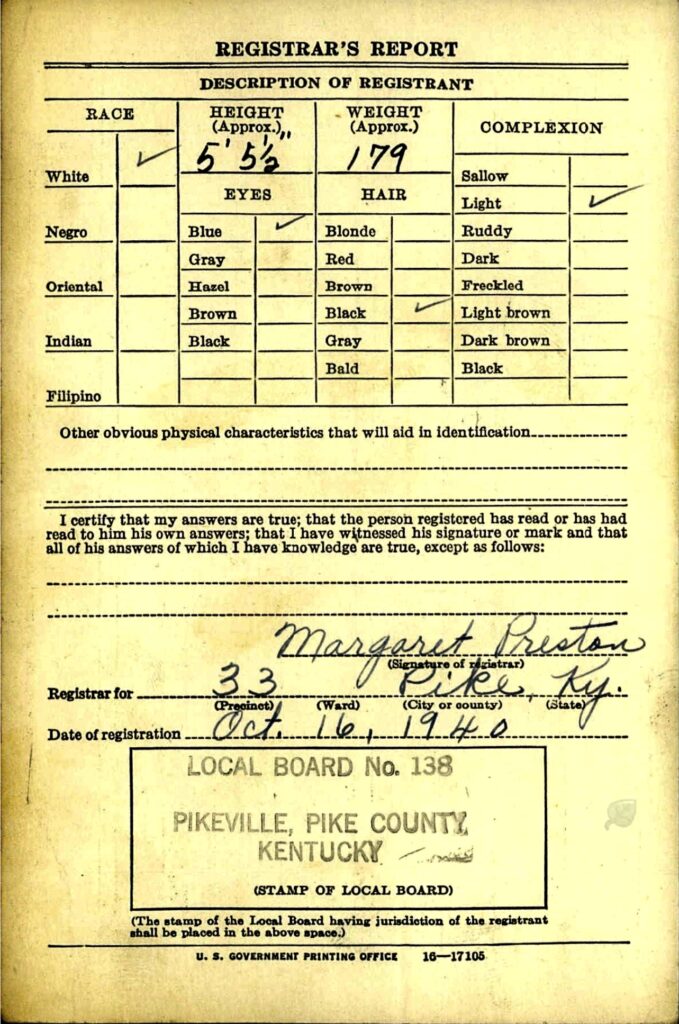 REGISTRAR'S REPORT
DESCRIPTION OF REGISTRANT
RACE
HEIGHT
(Approx.)
WEIGHT
(Approx.)
COMPLEXION
5' 5½"
179
White
Sallow
EYES
HAIR
Light
Negro
Blue
Blonde
Ruddy
Gray
Red
Dark
Oriental
Hazel
Brown
Freckled
Brown
Black
Light brown
Indian
Black
Gray
Dark brown
Bald
Black
Filipino
Other obvious physical characteristics that will aid in identification
I certify that my answers are true; that the person registered has read or has had
read to him his own answers; that I have witnessed his signature or mark and that
all of his answers of which I have knowledge are true, except as follows:
Margaret Preston
(Signature of registrar)
Registrar for 33 Pike, Ky.
(Precinct) (Ward) (City or county) (State)
Date of registration Oct. 16, 1940
LOCAL BOARD No. 138
PIKEVILLE, PIKE COUNTY,
KENTUCKY
(STAMP OF LOCAL BOARD)
(The stamp of the Local Board having jurisdiction of the registrant
shall be placed in the above space.)
U. S. GOVERNMENT PRINTING OFFICE 16—17105